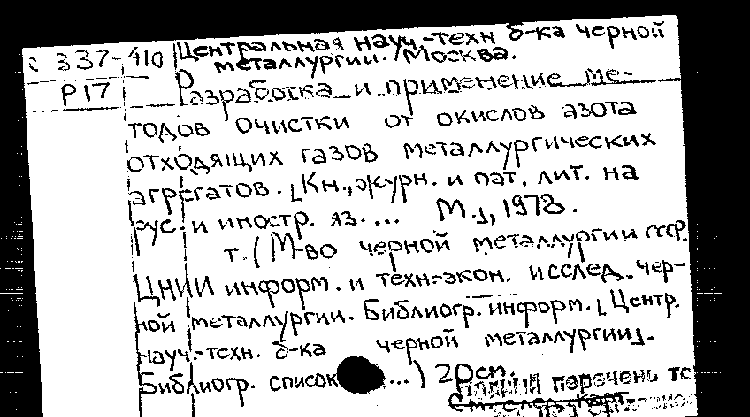 с 337-410
Р17
Центральная науч.-техн б-ка черной
металлургии. Москва.
Разработка и применение ме-
тодов очистки от окислов азота
отходящих газов металлургических
агрегатов. [Кн., журн. и пат. лит. на
рус. и иностр. яз. ... М.], 1978.
т. (М-во черной металлургии СССР.
ЦНИИ информ. и техн-экон. исслед. чер-
ной металлургии. Библиогр. информ. [Центр.
науч.-техн. б-ка черной металлургии].
Библиогр. список ...) 20сп.
Полный перечень
См. след. карт.